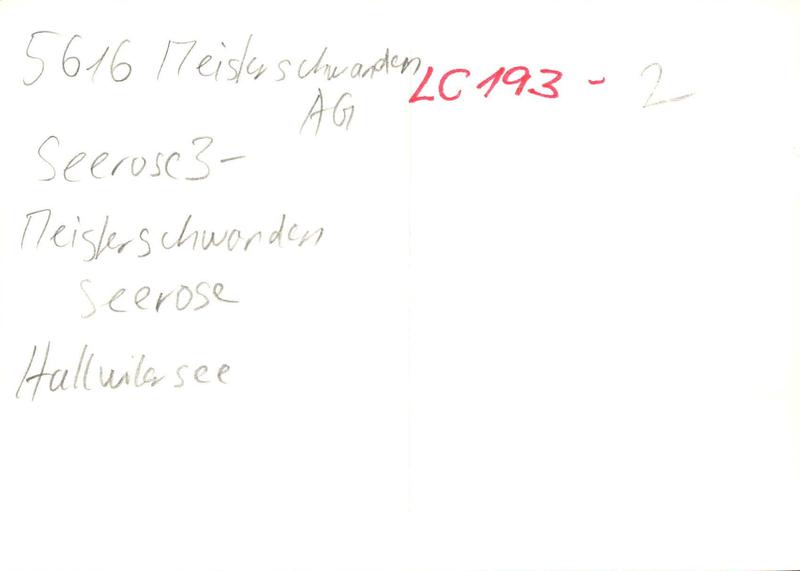 5616 Meisterschwanden
AG
LC 193 - 2
Seerose 3 -
Meisterschwanden
Seerose
Hallwilersee